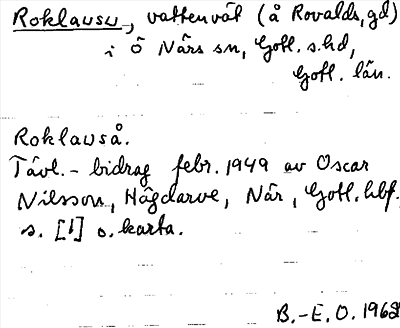 Roklausu, vattenvät (å Rovalds, gd)
i Ö När sn, Gotl. s. hd,
Gotl. län.
Roklauså.
Tävl. - bidrag febr. 1949 av Oscar
Nilsson, Hågdarve, När, Gotl. hbf.
s. [1] o. karta.
B.-E. O. 1962